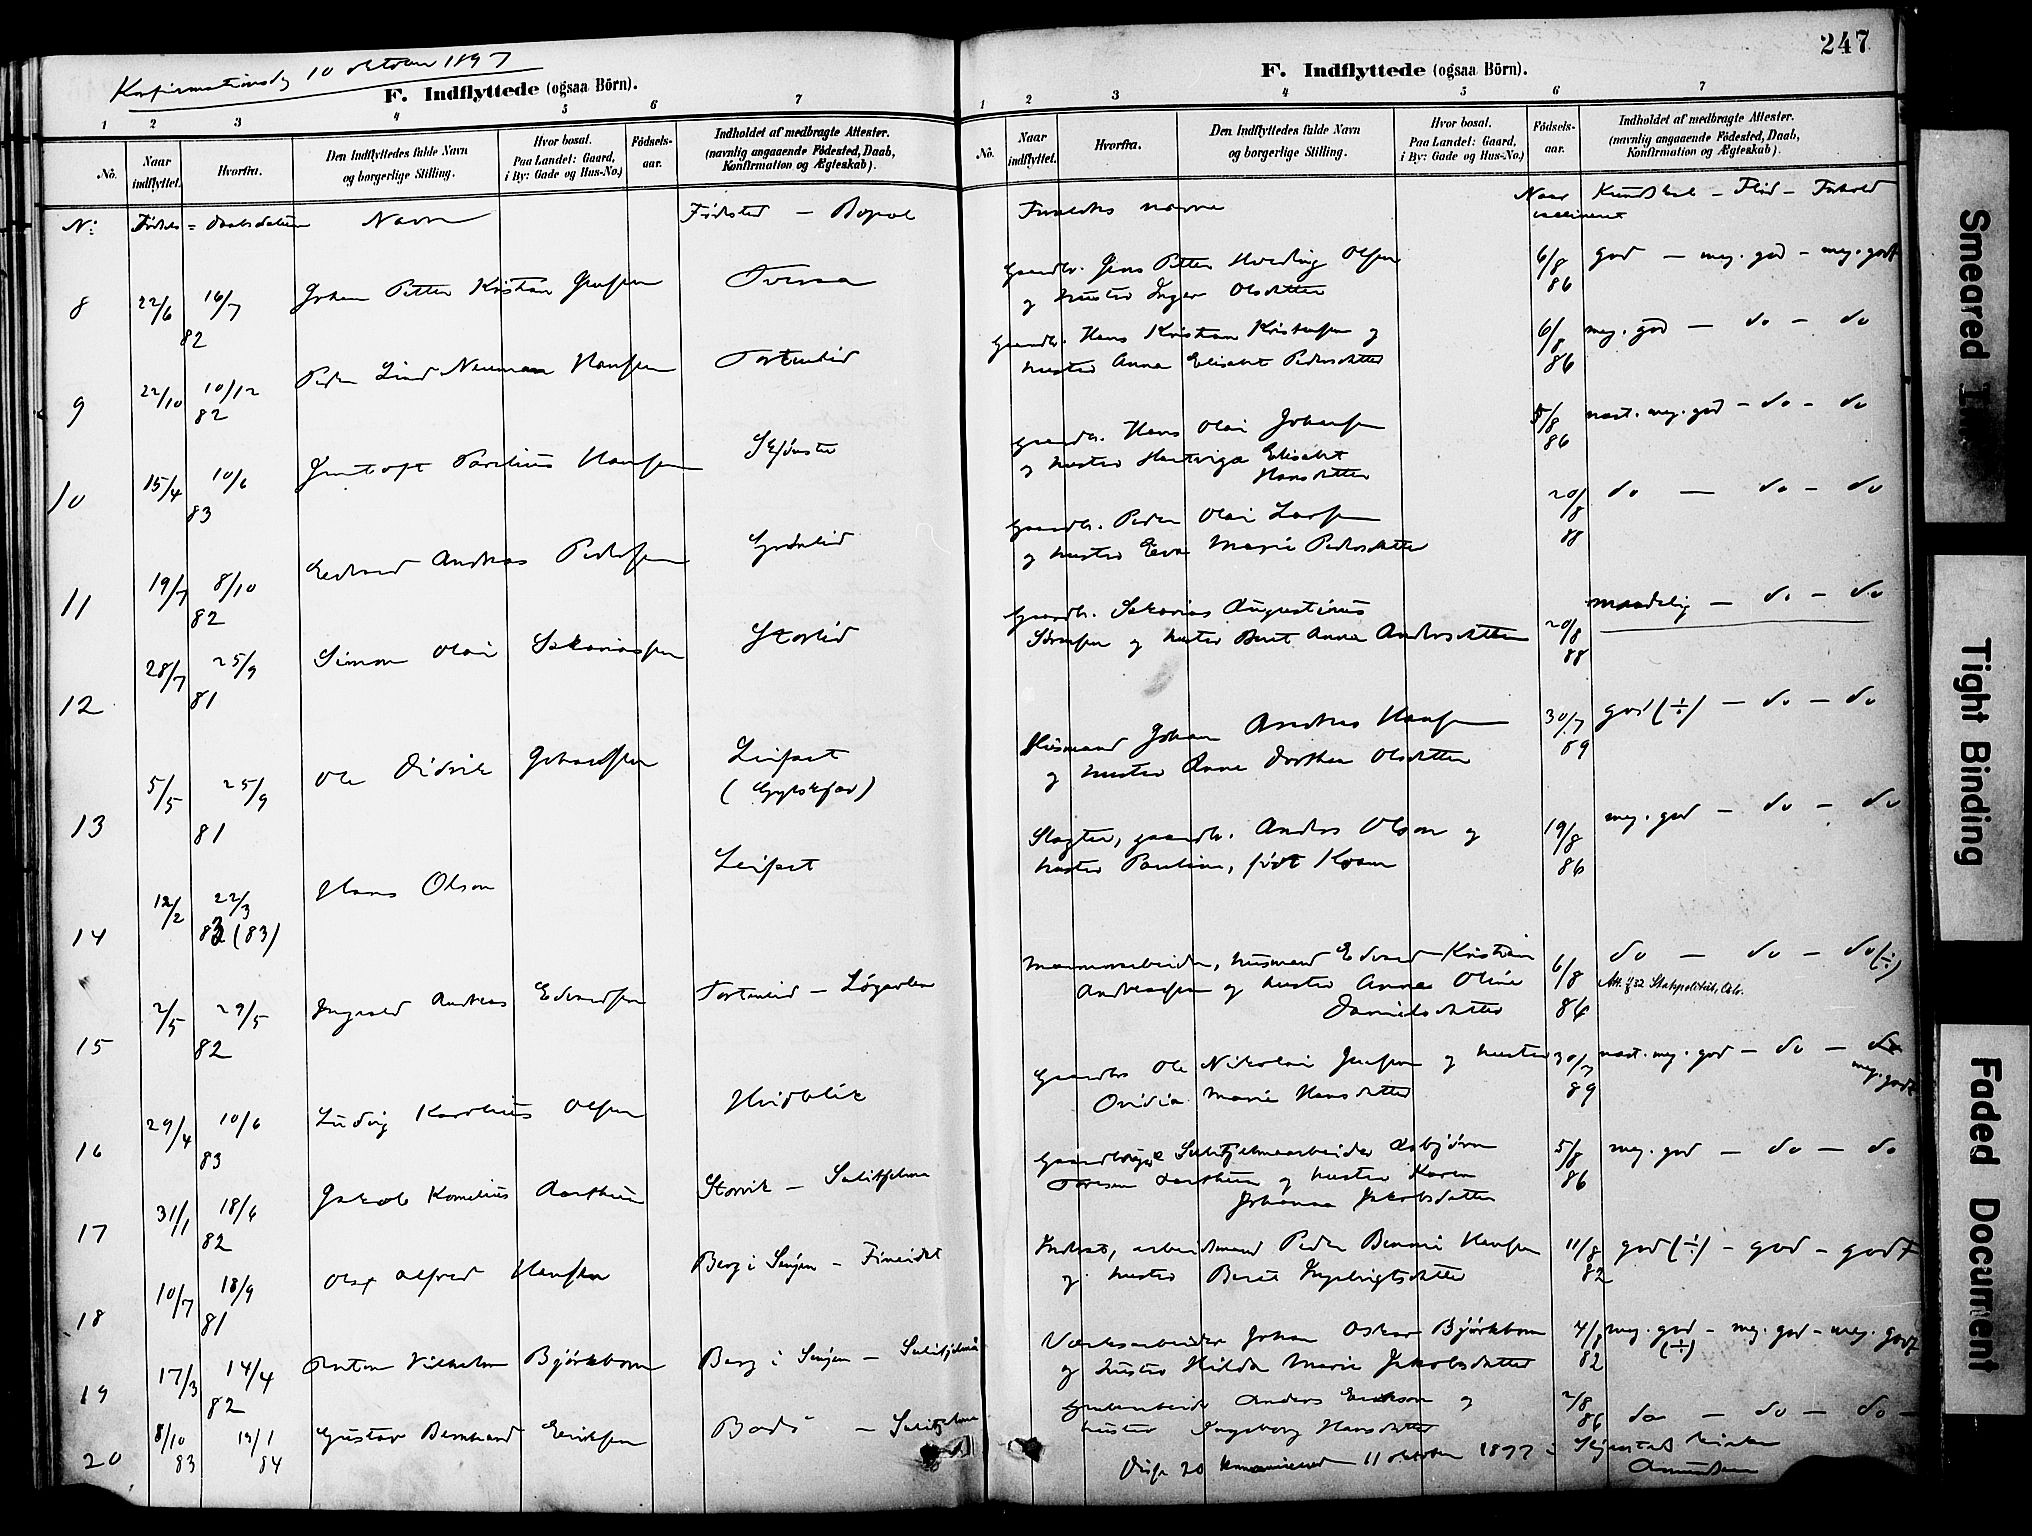 Konfirmationsdg 10 oktober 1897
F. Indflyttede (ogsaa Börn).
1 2 3 4 5 6 7
No. Naar indflyttet. Hvorfra. Den Indflyttedes fulde Navn og borgerlige Stilling. Hvor bosat. Paa Landet: Gaard, i By: Gade og Hus-No.) Födsels-aar. Indholdet af medbragte Attester. (navnlig angaaende Födested, Daab, Konfirmation og Ægteskab).
N: Födsels = Daabsdatum Navn Födested — Bopæl
8 22/6 16/7 82 Johan Petter Kristian Jensen Tveraa
9 22/10 10/12 82 Peder Lind Neuman Hansen Tortenlid
10 15/4 10/6 83 Parelius Hansen
11 19/7 8/10 82 Edvard Andreas Pedersen Grönlid
12 28/7 25/9 81 Simon Olai Sakariassen Storlid
13 5/5 25/9 81 Ole Didrik Johansen Leifset
14 12/2 22/3 83 (83) Hans Olson Leifset
15 2/5 29/5 82 Ingvald Andreas Edvardsen Tortenlid — Løgavlen
16 29/4 10/6 83 Ludvig Karolius Olsen Hvidblik
17 31/1 18/6 82 Jakob Kornelius Aarstein Storvik — Sulitjelma
18 10/7 18/9 81 Olaf Alfred Hansen Berg i Senjen — Fineidet
19 17/3 14/4 82 Anton Vilhelm Björkbom Berg i Senjen — Sulitjelma
20 8/10 83 19/1 84 Gustav Bernhard Eriksen Bodö — Sulitjelma
247
F. Indflyttede (ogsaa Börn).
1 2 3 4 5 6 7
No. Naar indflyttet. Hvorfra. Den Indflyttedes fulde Navn og borgerlige Stilling. Hvor bosat. Paa Landet: Gaard, i By: Gade og Hus-No.) Födsels-aar. Indholdet af medbragte Attester. (navnlig angaaende Födested, Daab, Konfirmation og Ægteskab).
Forældres navne Naar vaccineret Kundskab — Flid — Forhold
Gaardbr. Jens Petter Hveding Olsen 6/8 86 god — meg. god — meg. godt
og hustru Inger Olsdatter
Gaardbr. Hans Kristian Kristensen og 6/8 86 meg. god — do — do
hustru Anna Elisabet Pedersdatter
Gaardbr. Hans Olai Johansen 5/8 86 næst. meg. god — do — do
og hustru Hartviga Elisabet
Hansdatter
Gaardbr. Peder Olai Larsen 20/8 88 do — do — do
og hustru Eva Marie Pedersdatter
Gaardbr. Sakarias Augustinus 20/8 88 maadelig — do — do
Sörensen og hustru Berit Anna Andersdatter
Husmand Johan Andreas Hansen 30/7 89 god (÷) — do — do
og hustru Anne Dorthea Olsdatter
Slagter, gaardbr. Anders Olson og 19/8 86 meg. god — do — do
hustru Pauline, født Kvam
Marmorarbeider, husmand Edvard Kristian 6/8 86 do — do — do (÷)
Andreassen og hustru Anna Oline
Danielsdatter
Att. § 32 Statspolitiet, Oslo.
Gaardbr Ole Nikolai Jensen og hustru 30/7 89 næst. meg. god — do — do
Ovidia Marie Hansdatter meg. godt
Sulitjelmaarbeider Asbjörn 5/8 86 meg. god — do — do
Toresen Aarstein og hustru Karen
Johanna Jakobsdatter
Inderst, arbeidsmand Peder Benoni Hansen 11/8 82 god (÷) — god — godt
og hustru Berit Ingebrigtsdatter
Værksarbeider Johan Oskar Björkbom 4/8 82 meg. god (÷) — meg. god — meg. godt
og hustru Hilda Marie Jakobsdatter
Grubearbeid Anders Erikson og 2/8 86 do — do — do
hustru Ingeborg Hansdatter
Disse 20 konfirmered 11 oktober 1897 i Skjerstad kirke
Amundsen
Smeared Ink
Tight Binding
Faded Document